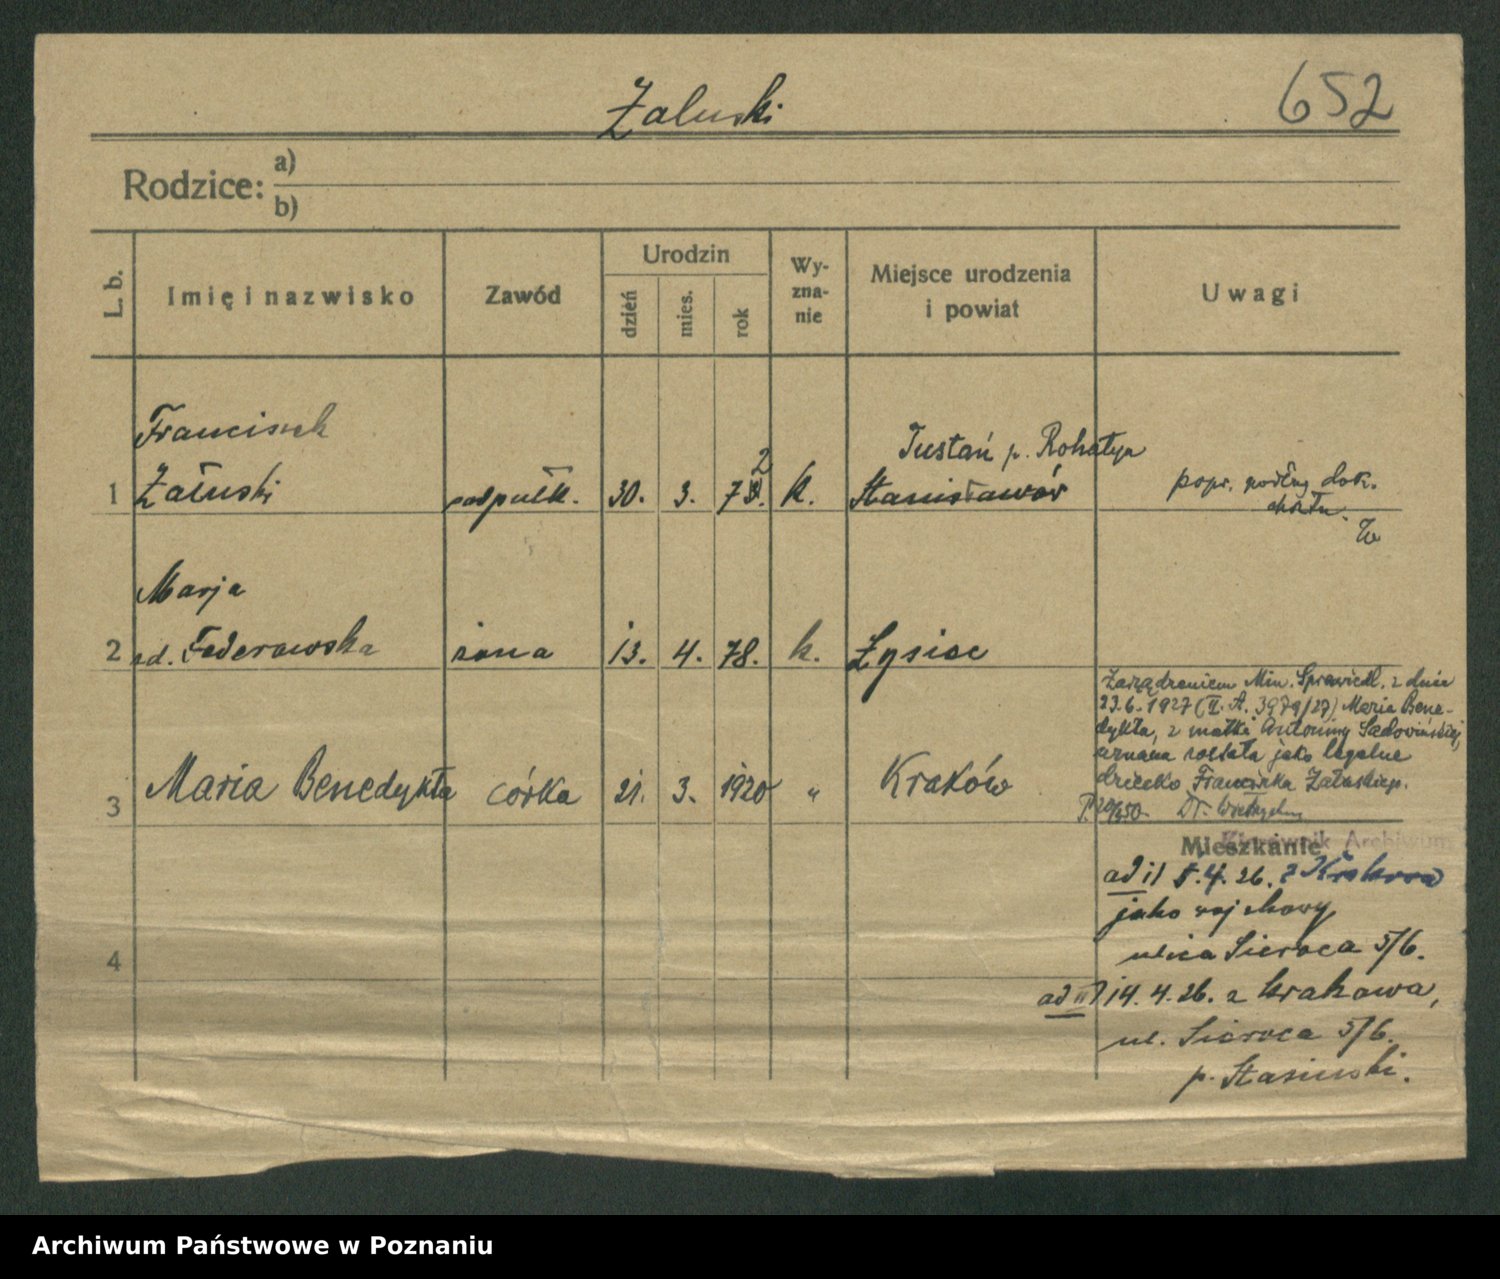 Żaluski
652
Rodzice:
a)
b)
L. b.
Imię i nazwisko
Zawód
Urodzin
dzień
mies.
rok
Wy-
zna-
nie
Miejsce urodzenia
i powiat
Uwagi
Franciszek
1 Załuski podpułk. 30. 3. 72. k. Stanisławów
Tustań p. Rohatyn
popr. według dok.
Marja
2 żona 13. 4. 78. k. Łysiec
zd. Federowska
3 Maria Benedykta córka 21. 3. 1920 „ Kraków
Zarządzeniem Min. Sprawiedl. z dnia
23.6.1927 (II. A. 3979/27) Maria Bene-
dykta, z matki Antoniny Sadowińskiej,
uznana została jako legalne
dziecko Franciszka Załuskiego.
Kierownik Archiwum
Mieszkanie
ad i) 4. 26. z Krakowa
jako wojskowy
ulica Sieroca 5/6.
4
ad II) 14. 4. 26. z Krakowa,
ul. Sieroca 5/6.
p. Stasiński.
Archiwum Państwowe w Poznaniu